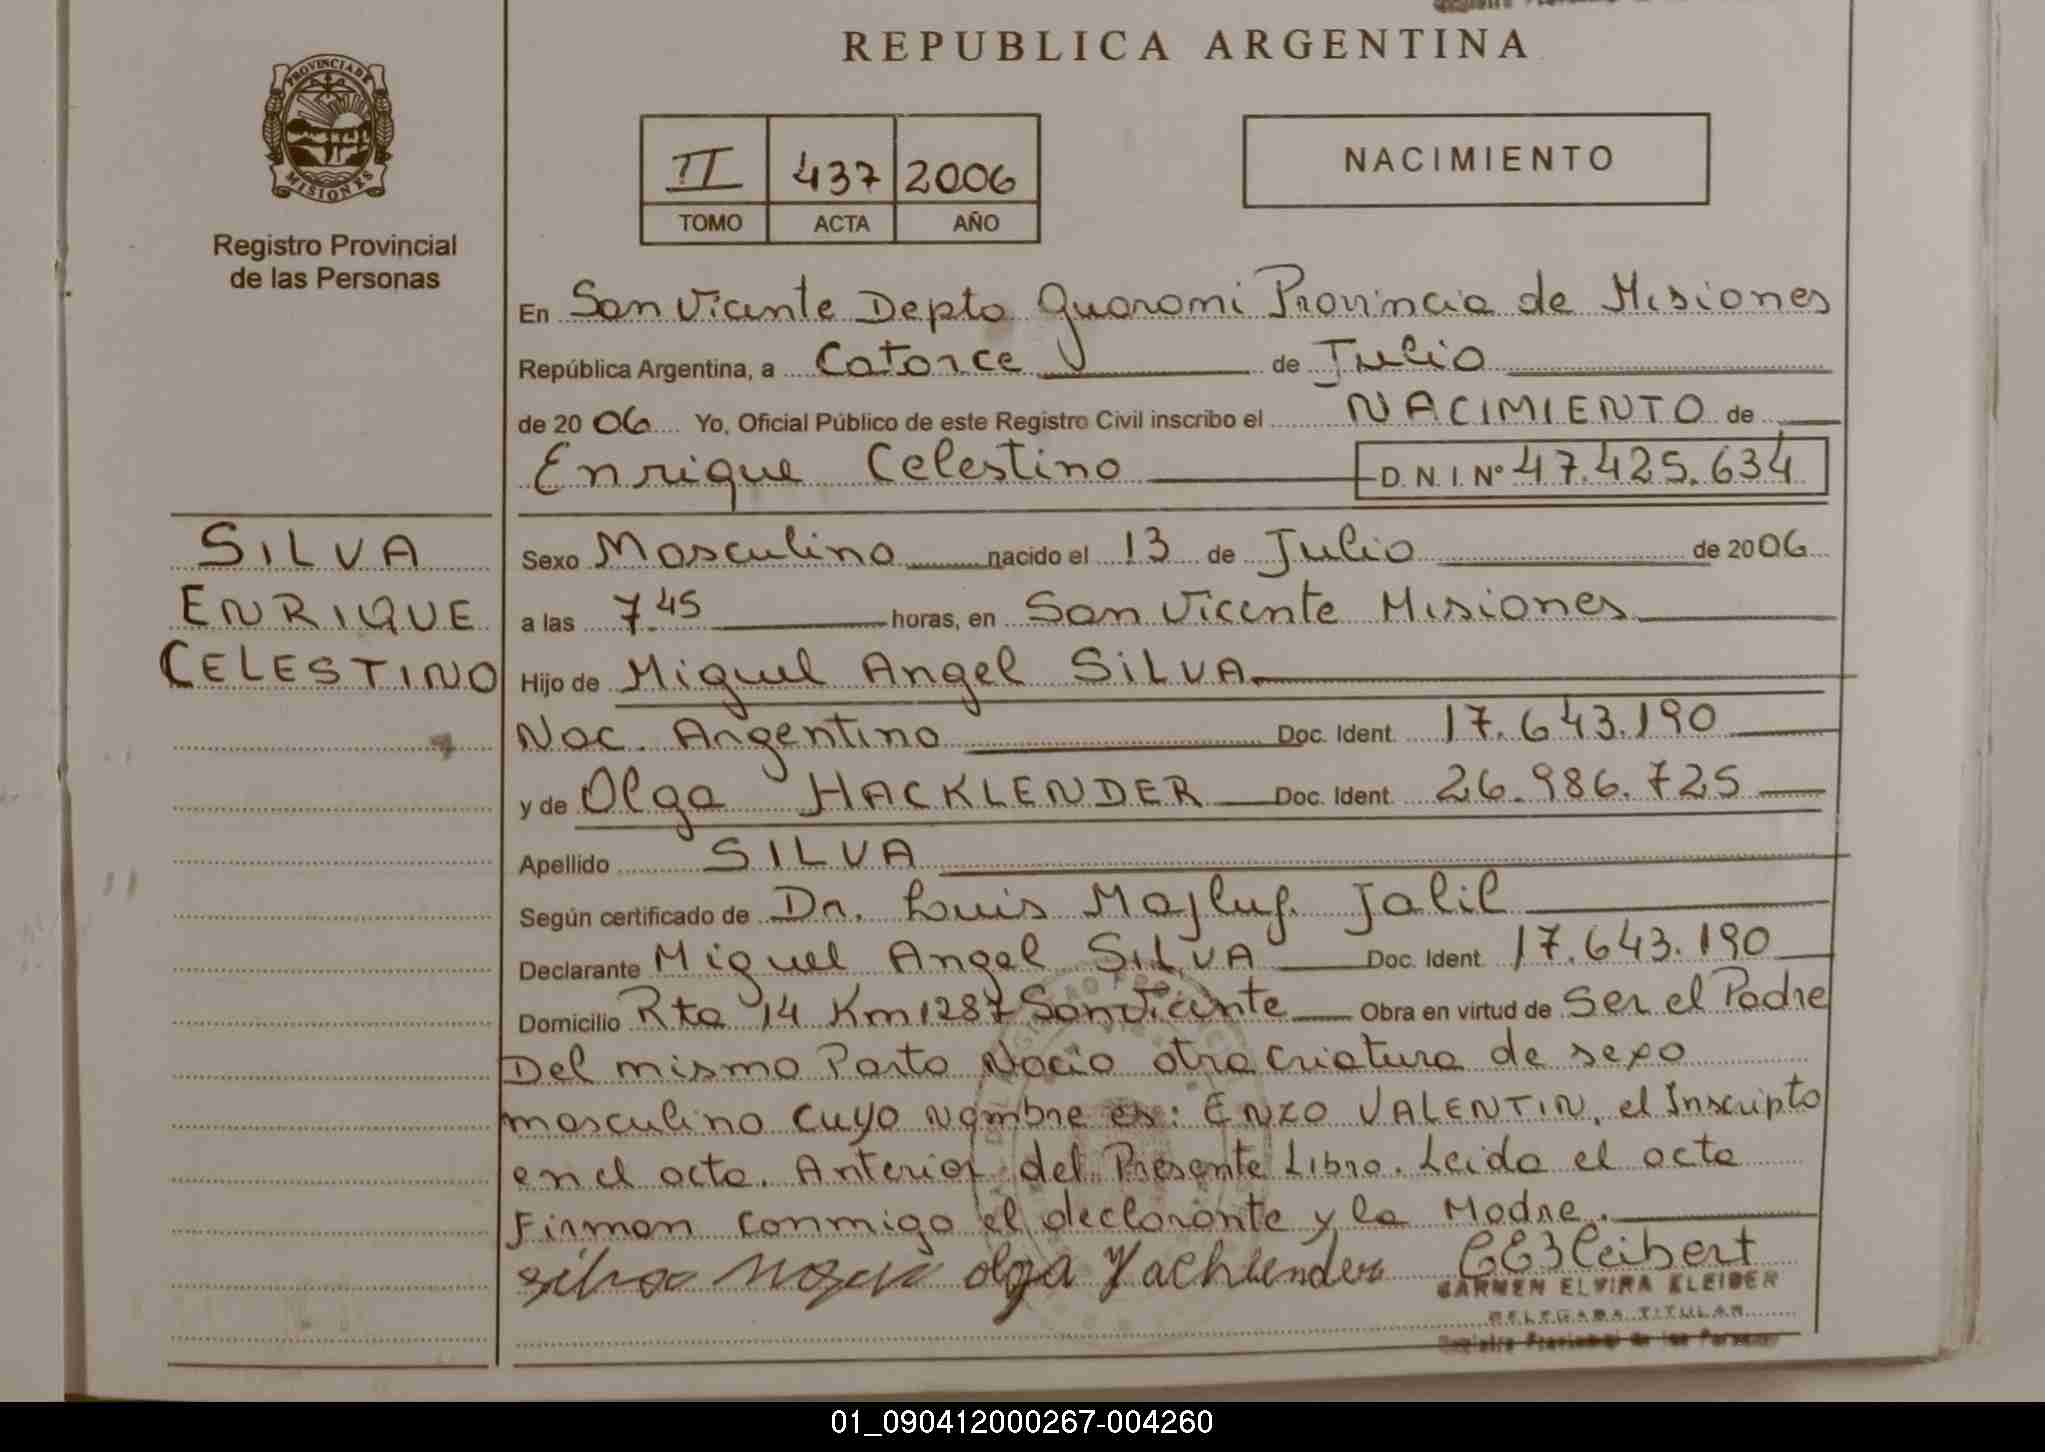 REPUBLICA ARGENTINA
PROVINCIA DE
MISIONES
Registro Provincial
de las Personas
II 437 2006
TOMO ACTA AÑO
NACIMIENTO
En San Vicente Depto Guarani Provincia de Misiones
República Argentina, a Catorce de Julio
de 2006 Yo, Oficial Público de este Registro Civil inscribo el NACIMIENTO de
Enrique Celestino D. N. I. Nº 47.425.634
SILVA
ENRIQUE
CELESTINO
Sexo Masculino nacido el 13 de Julio de 2006
a las 7.45 horas, en San Vicente Misiones
Hijo de Miguel Angel SILVA
Nac. Argentino Doc. Ident. 17.643.190
y de Olga HACKLENDER Doc. Ident. 26.986.725
Apellido SILVA
Según certificado de Dr. Luis Majluf Jalil
Declarante Miguel Angel SILVA Doc. Ident. 17.643.190
Domicilio Rta 14 Km 1287 San Vicente Obra en virtud de Ser el Padre
Del mismo Parto Nacio otra criatura de sexo
masculino cuyo nombre es: ENZO VALENTIN, el Inscripto
en el acta. Anterior del Presente Libro. Leida el acta
Firman conmigo el declarante y la Madre.
Olga Hachlender
CARMEN ELVIRA KLEIBER
DELEGADA TITULAR
Registro Provincial de las Personas
01_090412000267-004260